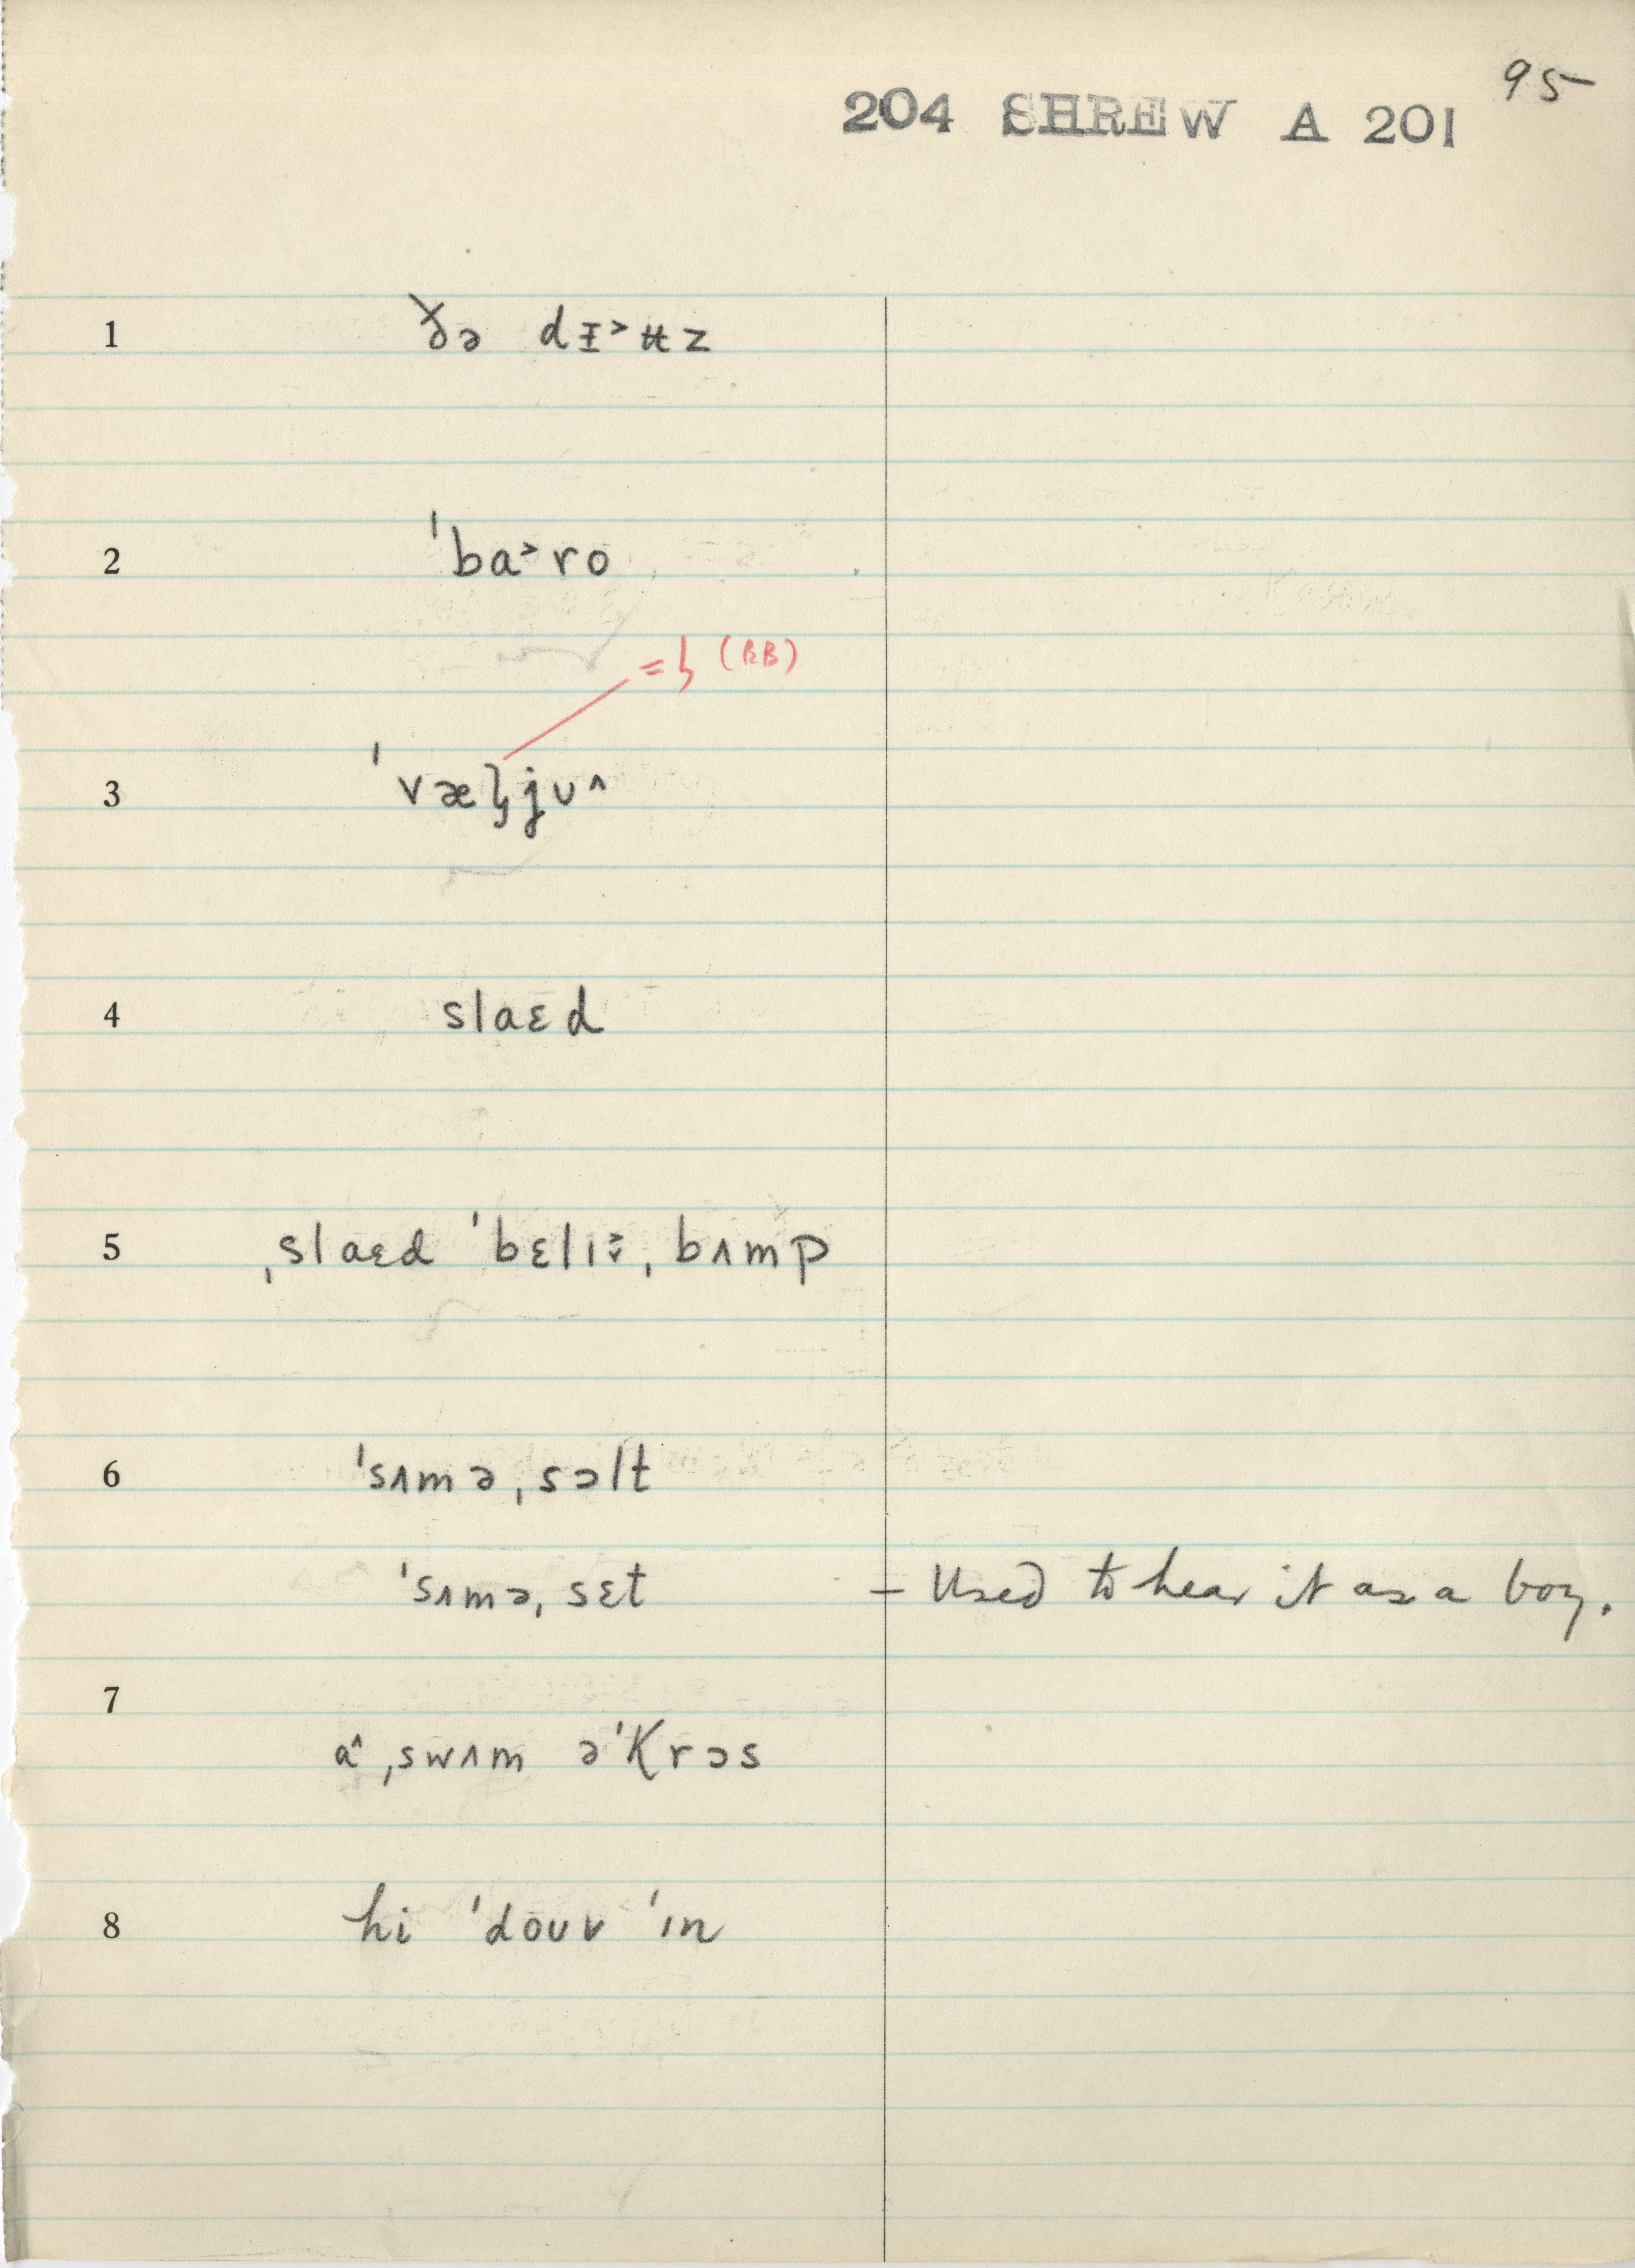 95
204 SHREW A 201
1 ðə dɪ˃ʉz
2 ˈba˃ro
= ɮ (RB)
3 ˈvæɮjʊ^
4 slaɛd
5 ˌslaɛd ˈbɛlɪ ˌbʌmp
6 ˈsʌmə ˌsɔlt
ˈsʌmə ˌsɛt — Used to hear it as a boy.
7
a^ ˌswʌm əˈkrɔs
8 hi ˈdoʊv ˈɪn